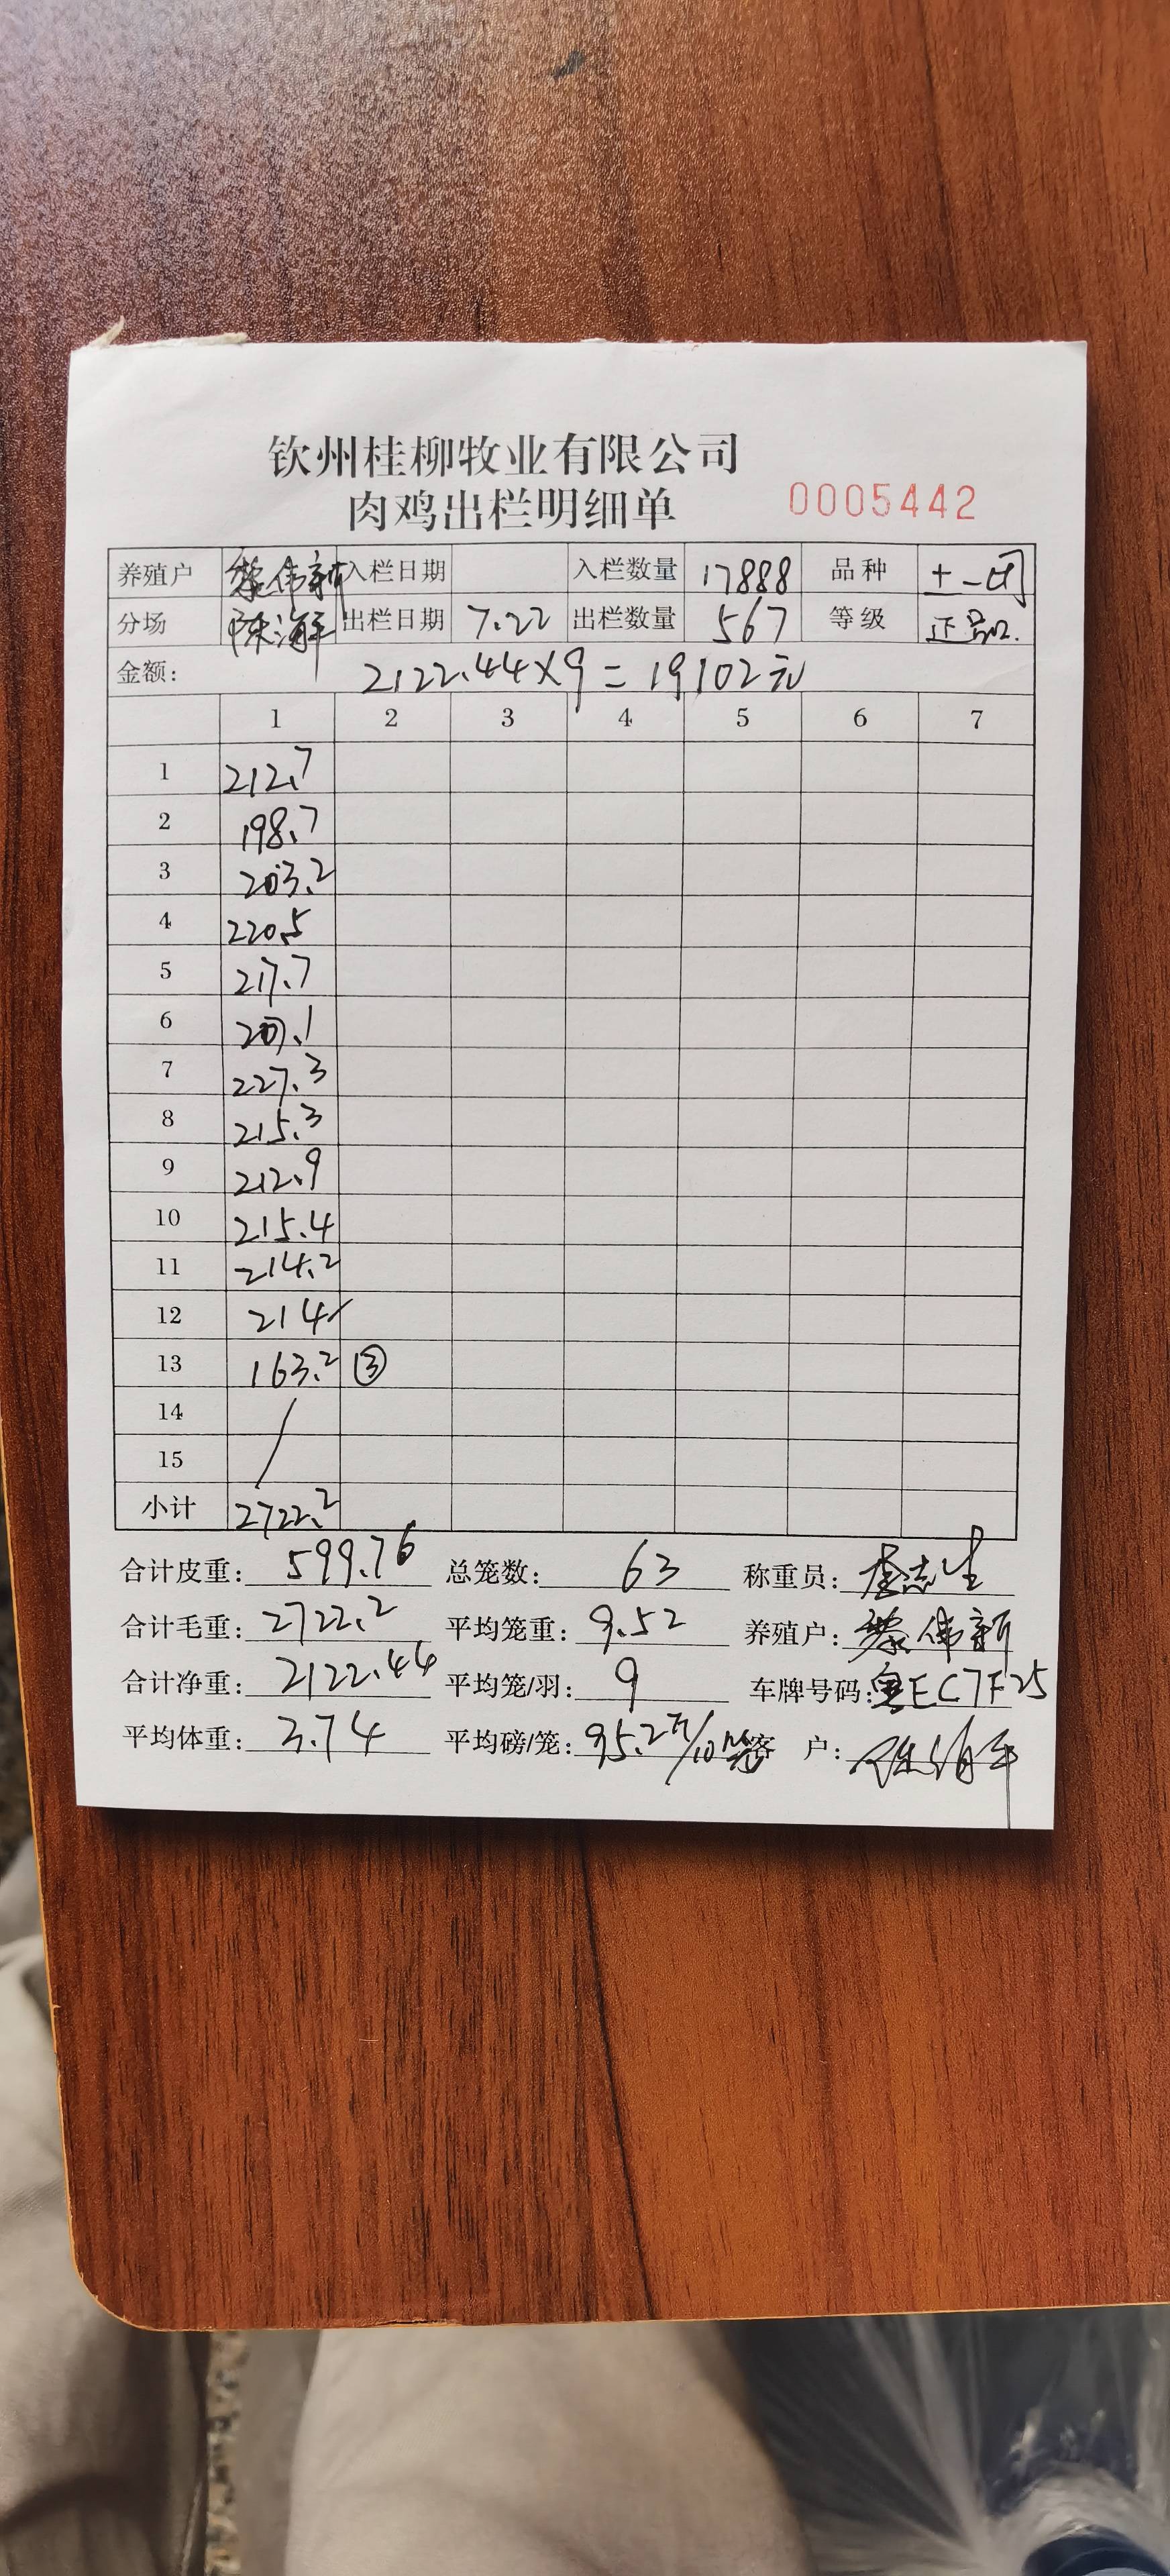 钦州桂柳牧业有限公司
肉鸡出栏明细单 0005442
养殖户 黎伟新 入栏日期 入栏数量 17888 品种 土一
分场 陈海 出栏日期 7.22 出栏数量 567 等级 正品
金额: 2122.44×9=19102元
1 2 3 4 5 6 7
1 212.7
2 198.7
3 203.2
4 220.5
5 217.7
6 207.1
7 227.3
8 215.3
9 212.9
10 215.4
11 214.2
12 214
13 163.2 ③
14
15
小计 2722.2
合计皮重: 599.76 总笼数: 63 称重员: 志生
合计毛重: 2722.2 平均笼重: 9.52 养殖户: 黎伟新
合计净重: 2122.44 平均笼/羽: 9 车牌号码: 粤EC7F25
平均体重: 3.74 平均磅/笼: 95.2斤/10笼 客 户: